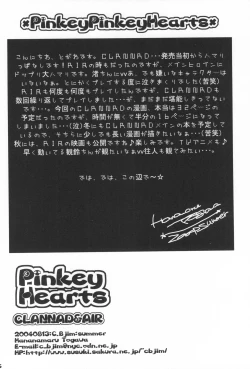 *PinkeyPinkeyHearts*
こんにちわ、とがわです。CLANNAD…発売当初からハマりっぱなしです!
AIRの時もだったのですが、メインヒロインに
ドップリ大ハマりです。渚ちんにwあ、でも嫌いなキャラクターは
いないなぁ。とにかくプレイする度に泣きまくりでした(苦笑)
AIRも何度も何度もプレイしたんですが、CLANNADも
数回繰り返してプレイしました…が、まだまだ堪能しきってない
です…。今回のCLANNADの漫画、本当は32ページの
予定だったのですが、時間が無くて半分の16ページになって
しまいました…(泣)冬にもCLANNADメインの本を予定して
いるので、そちらに少しでも長い漫画が描きたいなぁ…(苦笑)
秋には、AIRの映画も公開ですね♪楽しみです。TVアニメも♪
早く動いてる観鈴ちんが観たいなぁw往人も観てみたい…。
では、では、この辺で〜☆
Pinkey
Hearts
CLANNAD&AIR
20040813:C.B.jim:summer
Hananamaru Togawa
E-mail:c.b.jim@nyc.odn.ne.jp
HP:http://www.suzuki.sakura.ne.jp/~cbjim/